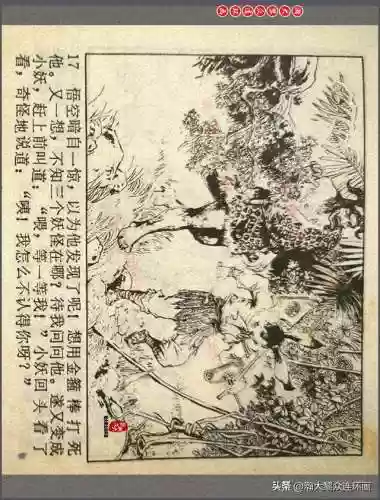 17 悟空暗自一惊，以为他发现了呢！想用金箍棒打死
他。又一想，不知三个妖怪在哪？待我问问他。遂又变成
小妖，赶上前叫道：“喂，等一等我！”小妖回头看了
看，奇怪地说道：“噢！我怎么不认得你呀？”
头条 @瀚大黧众连环画